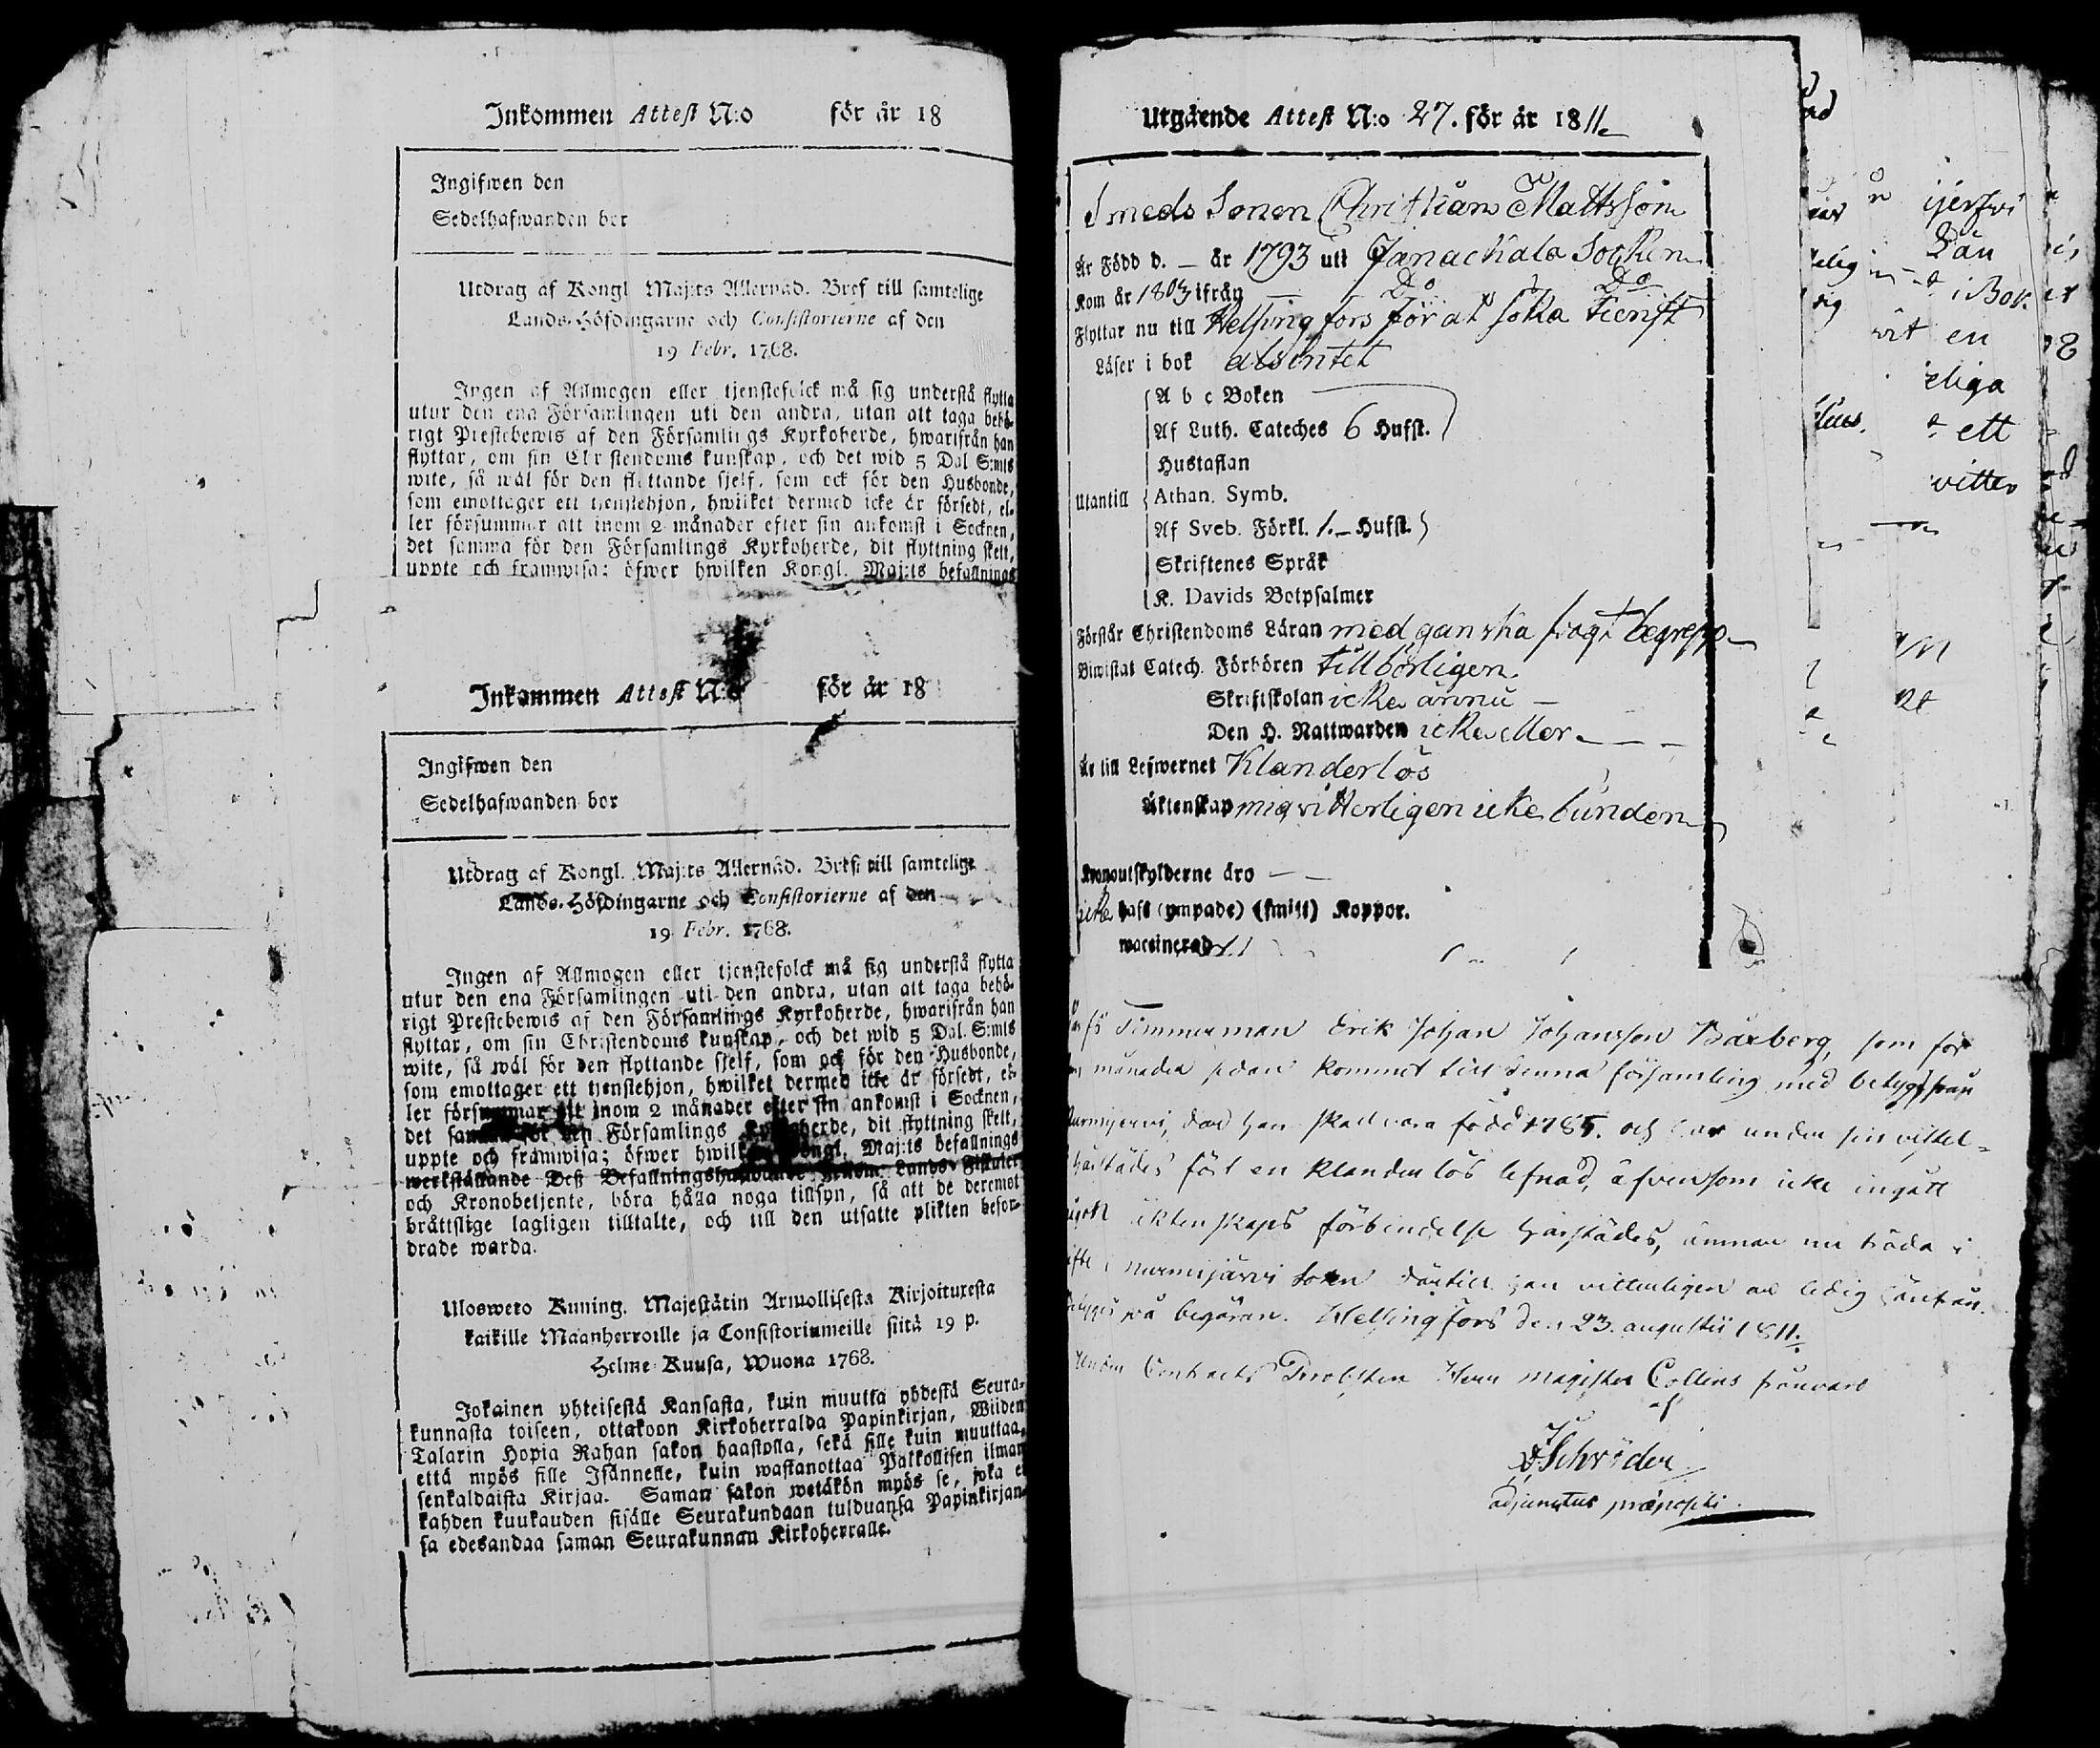 Inkommen Attest N:o för år 18
Ingifwen den
Sedelhafwanden bor
Utdrag af Kongl Maj:ts Allernåd. Bref till samtelige
Lands-Höfdingarne och Consistorierne af den
19 Febr. 1768.
Ingen af Allmogen eller tjenstefolck må sig understå flytta
utur den ena Församlingen uti den andra, utan att taga behö-
rigt Prestebewis af den Församlings Kyrkoherde, hwarifrån han
flyttar, om sin Christendoms kunskap, och det wid 5 Dal S:mts
wite, så wäl för den flyttande sjelf, som ock för den Husbonde,
som emottager ett tjenstehjon, hwilket dermed icke är försedt, el-
ler försummar att inom 2 månader efter sin ankomst i Socknen,
det samma för den Församlings Kyrkoherde, dit flyttning skett,
uppte och framwisa: öfwer hwilken Kongl. Maj:ts befallnings
Inkommen Attest N:o för år 18
Ingifwen den
Sedelhafwanden bor
Utdrag af Kongl. Maj:ts Allernåd. Bref till samtelige
Lands-Höfdingarne och Consistorierne af den
19 Febr. 1768.
Ingen af Allmogen eller tjenstefolck må sig understå flytta
utur den ena Församlingen uti den andra, utan att taga behö-
rigt Prestebewis af den Församlings Kyrkoherde, hwarifrån han
flyttar, om sin Christendoms kunskap, och det wid 5 Dal. S:mts
wite, så wäl för den flyttande sjelf, som ock för den Husbonde,
som emottager ett tjenstehjon, hwilket dermed icke är försedt, el-
ler försummar att inom 2 månader efter sin ankomst i Socknen,
det samma för den Församlings Kyrkoherde, dit flyttning skett,
uppte och framwisa; öfwer hwilken Kongl. Maj:ts befallnings
werkställande Deß Befallningshafwande Lands-Fiskaler
och Kronobetjente, böra hålla noga tillsyn, så att de deremot
bråttslige lagligen tilltalte, och till den utsatte plikten befor-
drade warda.
Ulosweto Kuning. Majestätin Armollisesta Kirjoituxesta
kaikille Maanherroille ja Consistoriumeille siitä 19 p.
Helme-Kuusa, Wuona 1768.
Jokainen yhteisestä Kansasta, kuin muutta yhdestä Seura-
kunnasta toiseen, ottakoon Kirkoherralda Papinkirjan, Wiiden
Talarin Hopia Rahan sakon haastolla, sekä sille kuin muuttaa,
että myös sille Isännelle, kuin wastanottaa Palkollisen ilman
senkaldaista Kirjaa. Saman sakon wetäkön myös se, joka e
kahden kuukauden sisälle Seurakundaan tulduansa Papinkirjan-
sa edesandaa saman Seurakunnan Kirkoherralle.
Utgående Attest N:o 27. för år 1811
Smeds Sonen Christian Mattsson
Är Född d. – år 1793 uti Janackala Socken
Kom år 1803 ifrån Do Do
Flyttar nu till Helsingfors för at söka tienst
Läser i bok alsintet
A b c Boken
Af Luth. Cateches 6 Hufst.
Hustaflan
Utantill Athan. Symb.
Af Sveb. Förkl. 1. Hufst.
Skriftenes Språk
K. Davids Botpsalmer
Förstår Christendoms Läran med ganska svagt begrepp
Biwistat Catech. Förhören tillbörligen
Skriftskolan icke ännu
Den H. Nattwarden icke eller
Är till Lefwernet Klanderlös
Äktenskap mig vitterligen icke bunden
Kronoutskylderne äro
icke haft (ympade) (smitt) Koppor.
waccinerad
Timmerman Erik Johan Johansson Bärberg, som för
månader sedan kommit till denna församling med betyg från
Nurmijerwi, der han skall vara född 1785. och har under sin vistel-
härstädes fört en klanderlös lefnad, äfvensom icke ingått
något äktenskaps förbindelse härstädes, ämnar nu träda i
gifte i Nurmijärvi Sokn därtill han vitterligen är ledig härifrån.
betygas på begäran. Helsingfors den 23. augustii 1811.
Under Contracts Probsten Herr magister Collins frånvaro
af
Schröder
adjunctus præpositi